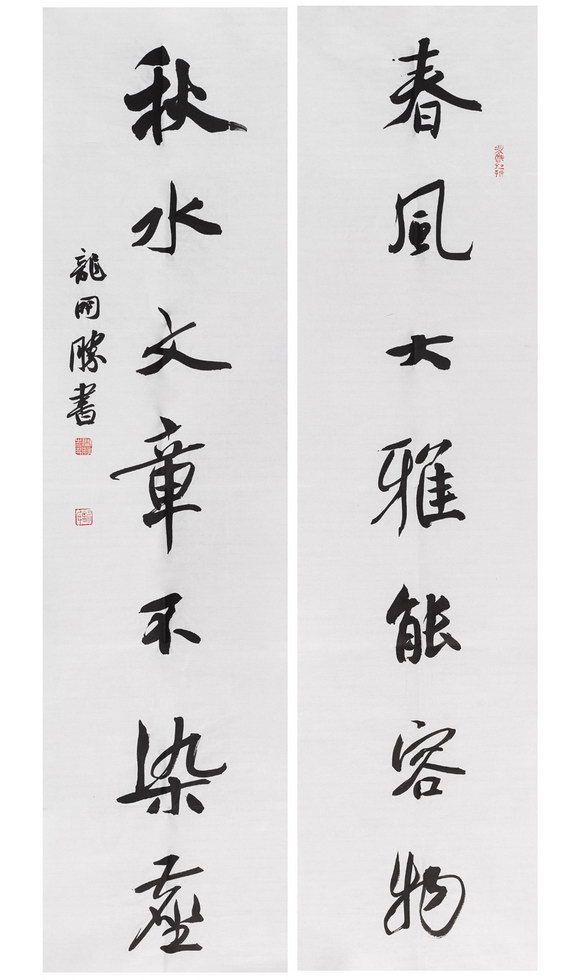 春風大雅能容物
秋水文章不染塵
龍開勝書